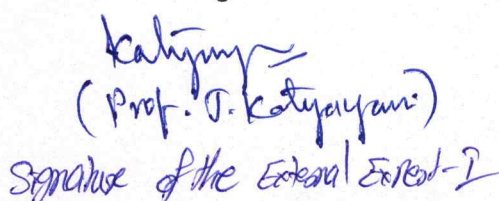 Katyayani
(Prof. J. Katyayani)
Signature of the External Expert-I